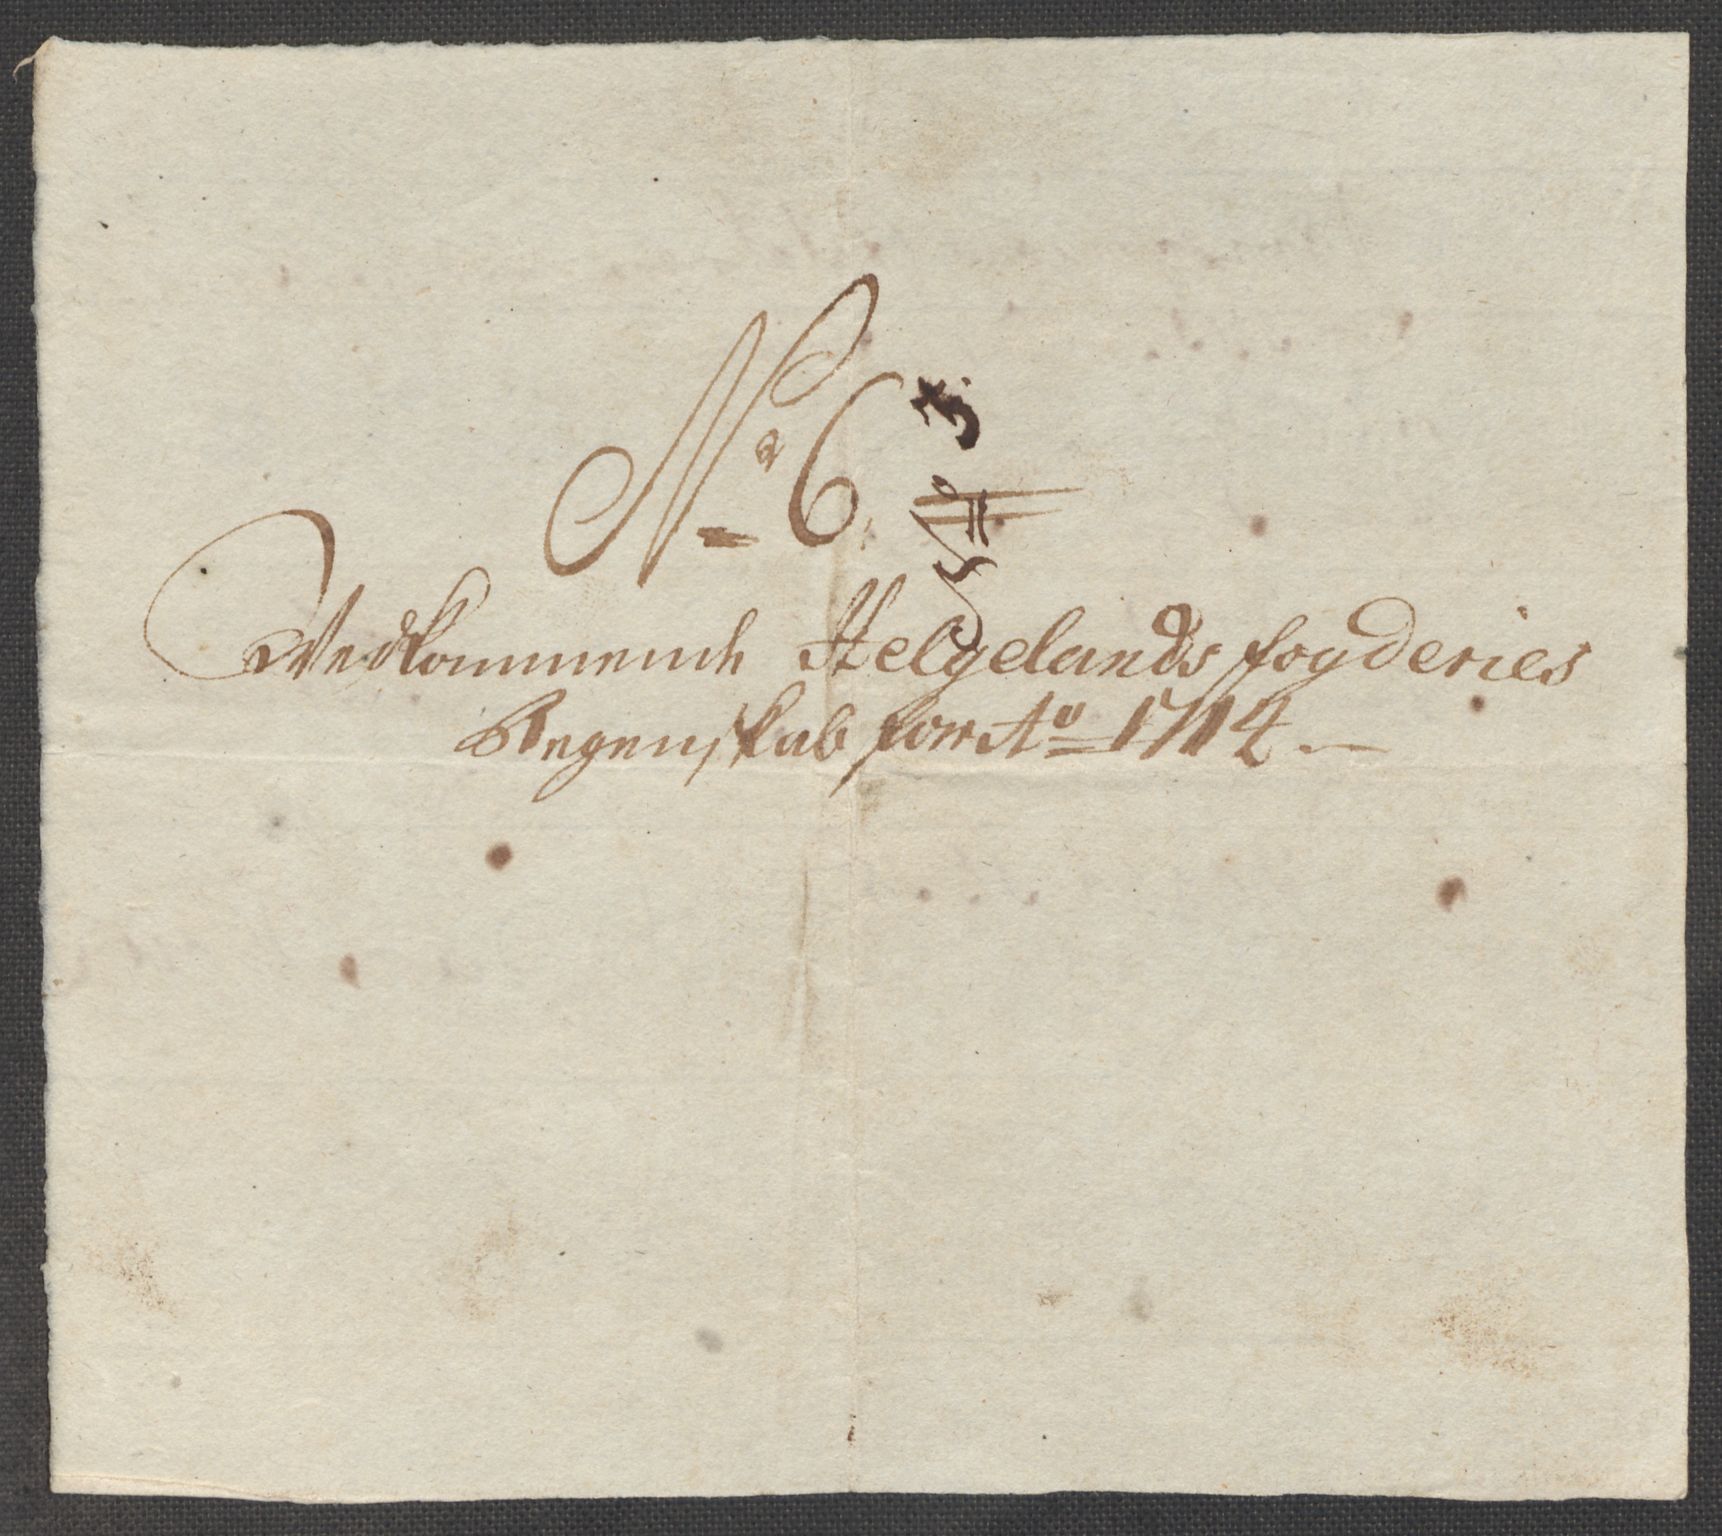 No 6.
No 3.
Vedkommende Helgelands fogderies
Regenskab for Ao 1714.